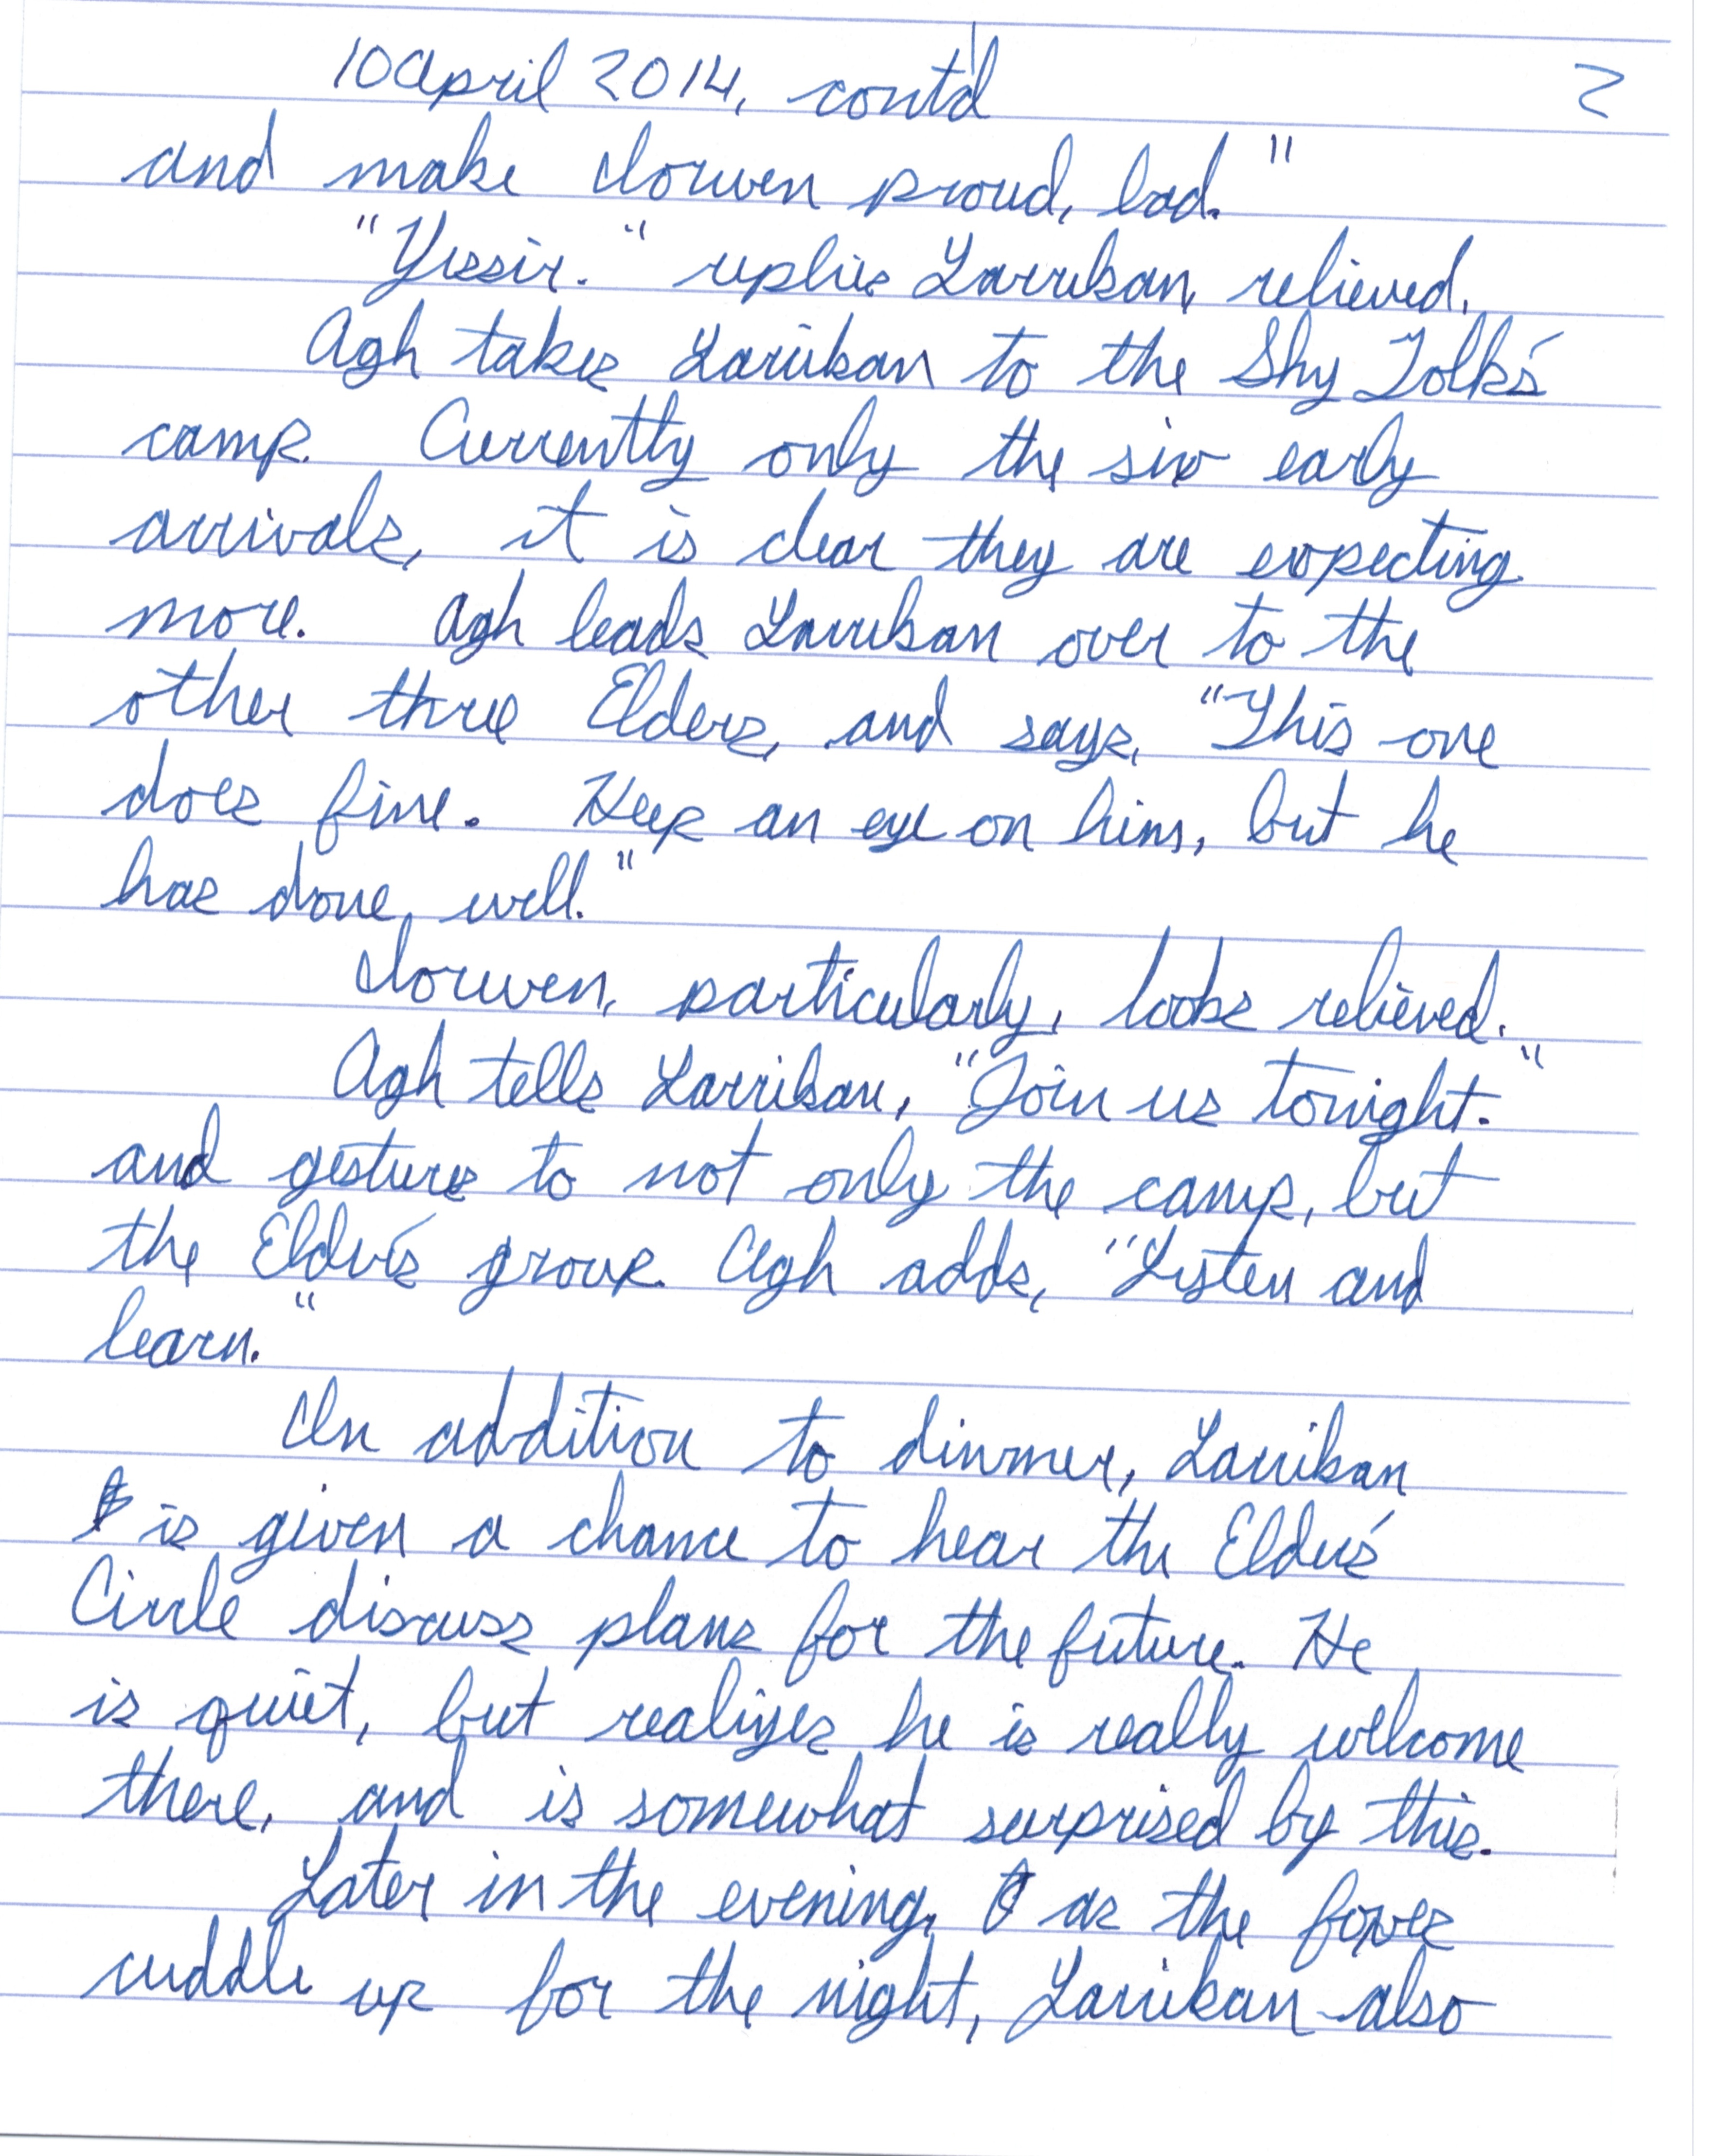 10 April 2014, cont'd 2
and make Iorwen proud, lad."
"Yessir." replies Larrikan, relieved.
Agh takes Larrikan to the Shy Folk's
camp. Currently only the six early
arrivals, it is clear they are expecting
more. Agh leads Larrikan over to the
other three Elders, and says, "This one
does fine. Keep an eye on him, but he
has done well."
Iorwen, particularly, looks relieved.
Agh tells Larrikan, "Join us tonight."
and gestures to not only the camp, but
the Elder's group. Agh adds, "Listen and
learn."
In addition to dinner, Larrikan
is given a chance to hear the Elder's
Circle discuss plans for the future. He
is quiet, but realizes he is really welcome
there, and is somewhat surprised by this.
Later in the evening, as the foxes
cuddle up for the night, Larrikan also